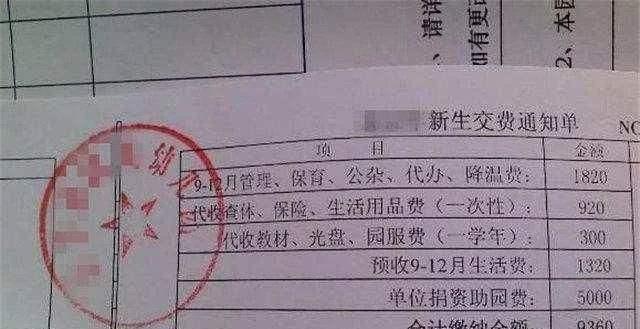 、请详
如有更改
2、本园
新生交费通知单 NO
项 目 金额
9-12月管理、保育、公杂、代办、降温费： 1820
代收查体、保险、生活用品费（一次性）： 920
代收教材、光盘、园服费（一学年）： 300
预收9-12月生活费： 1320
单位捐资助园费： 5000
合计缴纳金额 9360
幼儿园